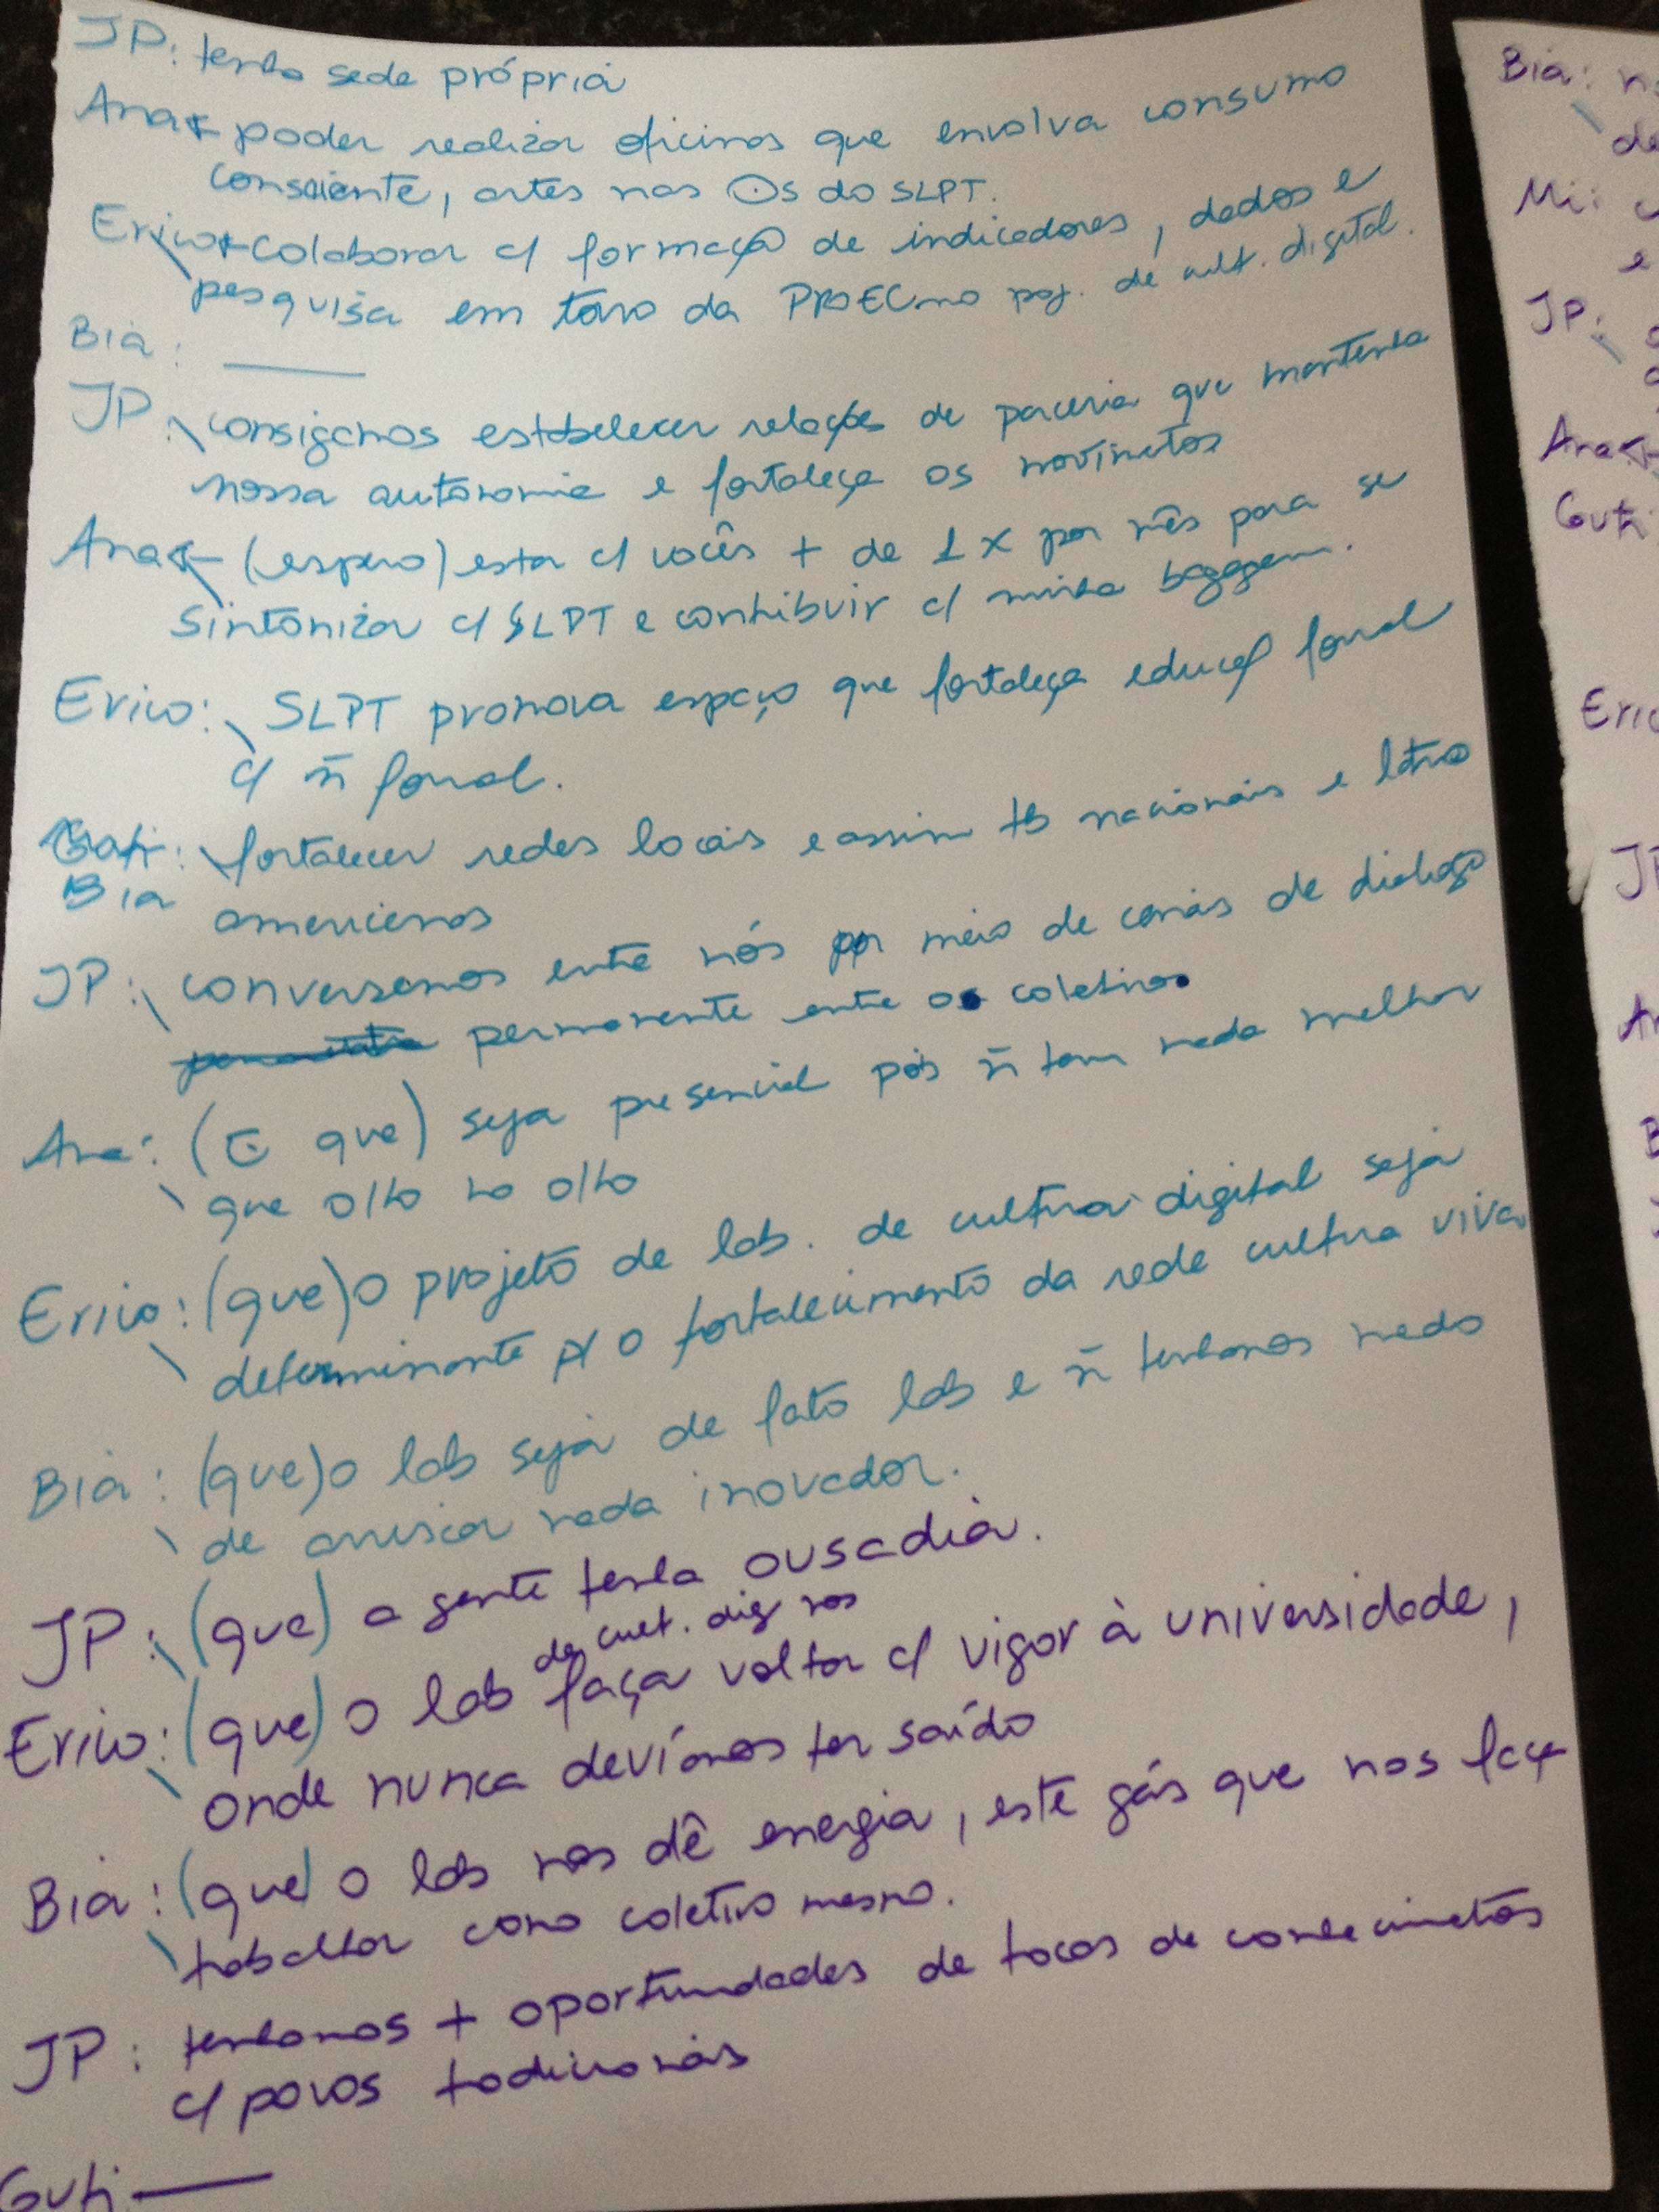 JP: tenha sede própria
Ana: poder realizar oficinas que envolva consumo
consciente, artes nas Os do SLPT.
Erico: colaborar c/ formação de indicadores, dados e
pesquisa em torno da PROEC no poj. de cult. digital.
Bia: ____
JP: consigamos estabelecer relações de parceria que mantenha
nossa autonomia e fortaleça os movimetos
Ana (espero) estar c/ vocês + de 1x por mês para se
sintonizar c/ SLPT e contribuir c/ minha bagagem.
Erico: SLPT promova espaço que fortaleça educaç formal
c/ ñ formal.
Bia: fortalecer redes locais e assim tb nacionais e latino
americanos
JP: conversemos entre nós por meio de canais de diálogo
permanente entre os coletivos
Ana: (E que) seja presencial pois ñ tem nada melhor
que olho no olho
Erico: (que) o projeto de lab. de cultura digital seja
determinante p/ o fortalecimento da rede cultura viva
Bia: (que) o lab seja de fato lab e ñ tenhamos medo
de arriscar nada inovador.
JP: (que) a gente tenha ousadia.
Erico: (que) o lab de cult. dig nos faça voltar c/ vigor à universidade,
onde nunca devíamos ter saído
Bia: (que) o lab nos dê energia, este gás que nos faça
trabalhar como coletivo mesmo.
JP: tenhamos + oportunidades de trocas de conhecimetos
c/ povos tradicionais
Guti ____
Bia:
de
Mi:
e
JP:
Ana
Guti
Eric
JP